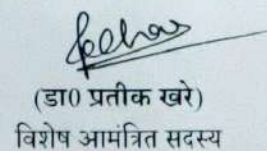 (डा0 प्रतीक खरे)
विशेष आमंत्रित सदस्य